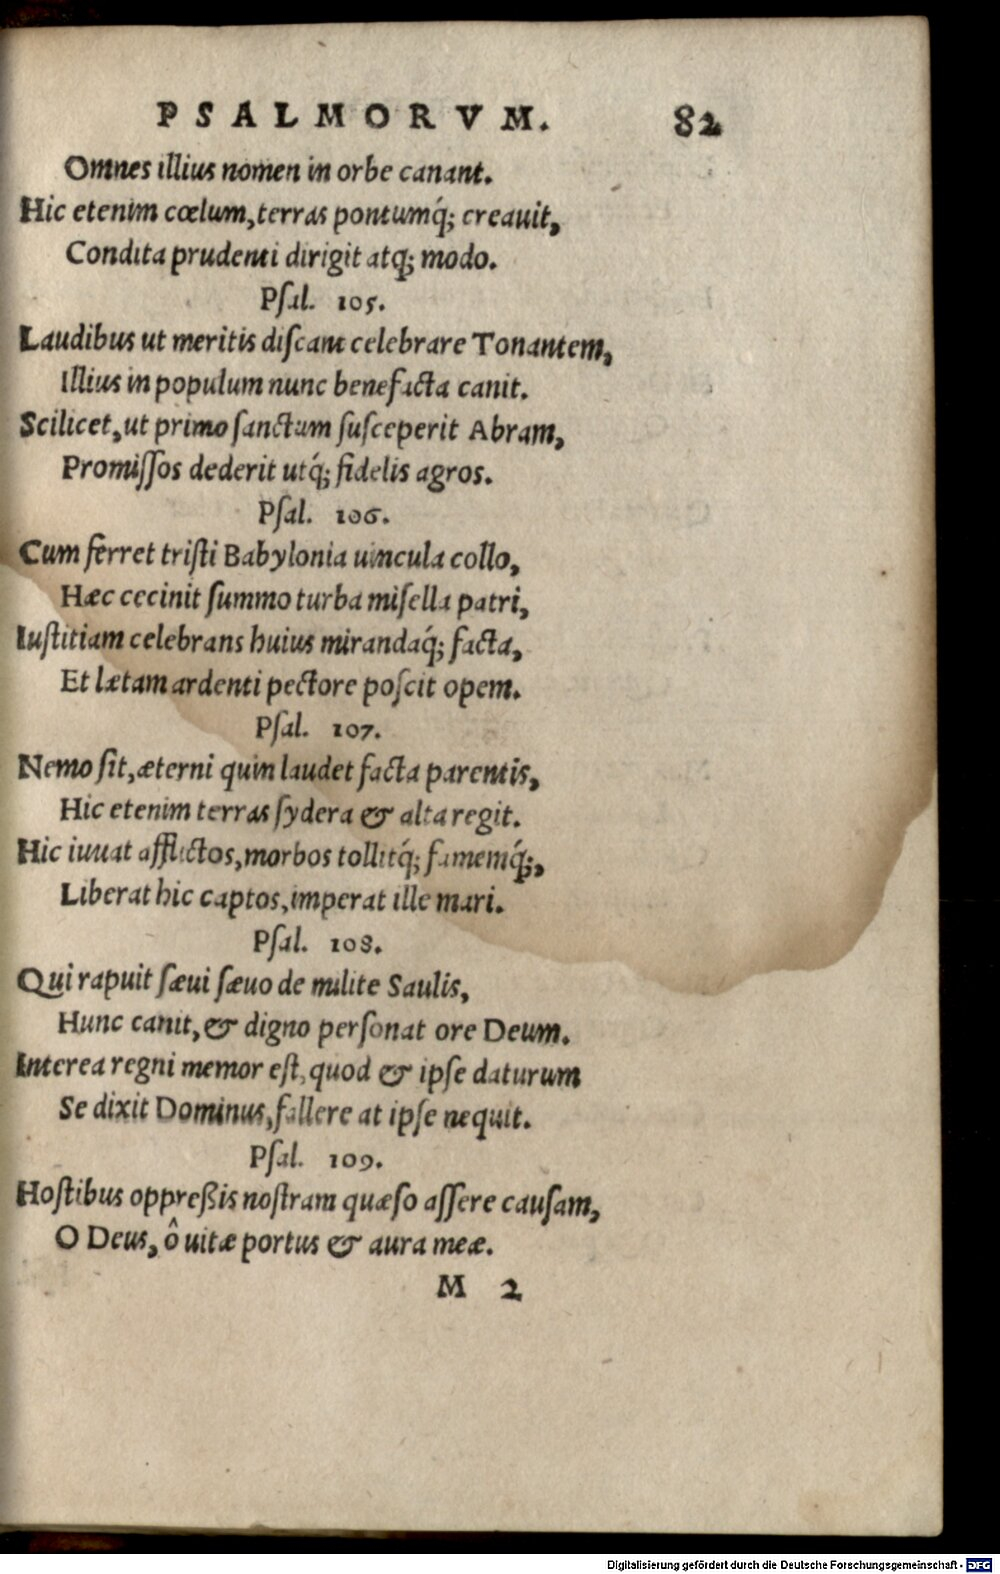 PSALMORVM. 82
Omnes illius nomen in orbe canant.
Hic etenim cœlum, terras pontumq́; creauit,
Condita prudenti dirigit atq; modo.
Pſal. 105.
Laudibus ut meritis diſcant celebrare Tonantem,
Illius in populum nunc benefacta canit.
Scilicet, ut primo ſanctum ſuſceperit Abram,
Promiſſos dederit utq́; fidelis agros.
Pſal. 106.
Cum ferret triſti Babylonia uincula collo,
Hæc cecinit ſummo turba miſella patri,
Iuſtitiam celebrans huius mirandaq́; facta,
Et lætam ardenti pectore poſcit opem.
Pſal. 107.
Nemo ſit, æterni quin laudet facta parentis,
Hic etenim terras ſydera & alta regit.
Hic iuuat afflictos, morbos tollitq́; famemq́;,
Liberat hic captos, imperat ille mari.
Pſal. 108.
Qui rapuit ſæui ſæuo de milite Saulis,
Hunc canit, & digno perſonat ore Deum.
Interea regni memor eſt, quod & ipſe daturum
Se dixit Dominus, fallere at ipſe nequit.
Pſal. 109.
Hoſtibus oppreßis noſtram quæſo aſſere cauſam,
O Deus, ô uitæ portus & aura meæ.
M 2
Digitalisierung gefördert durch die Deutsche Forschungsgemeinschaft - DFG